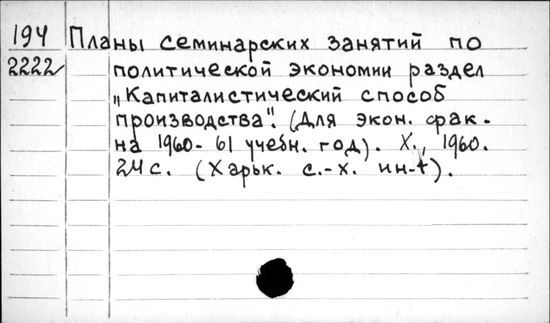 194 Планы семинарских занятий по
2222 политической экономии раздел
„Капиталистический способ
производства". (Для экон. фак.
на 1960-61 учебн. год). Х., 1960.
24 с. (Харьк. с.-х. ин-т).